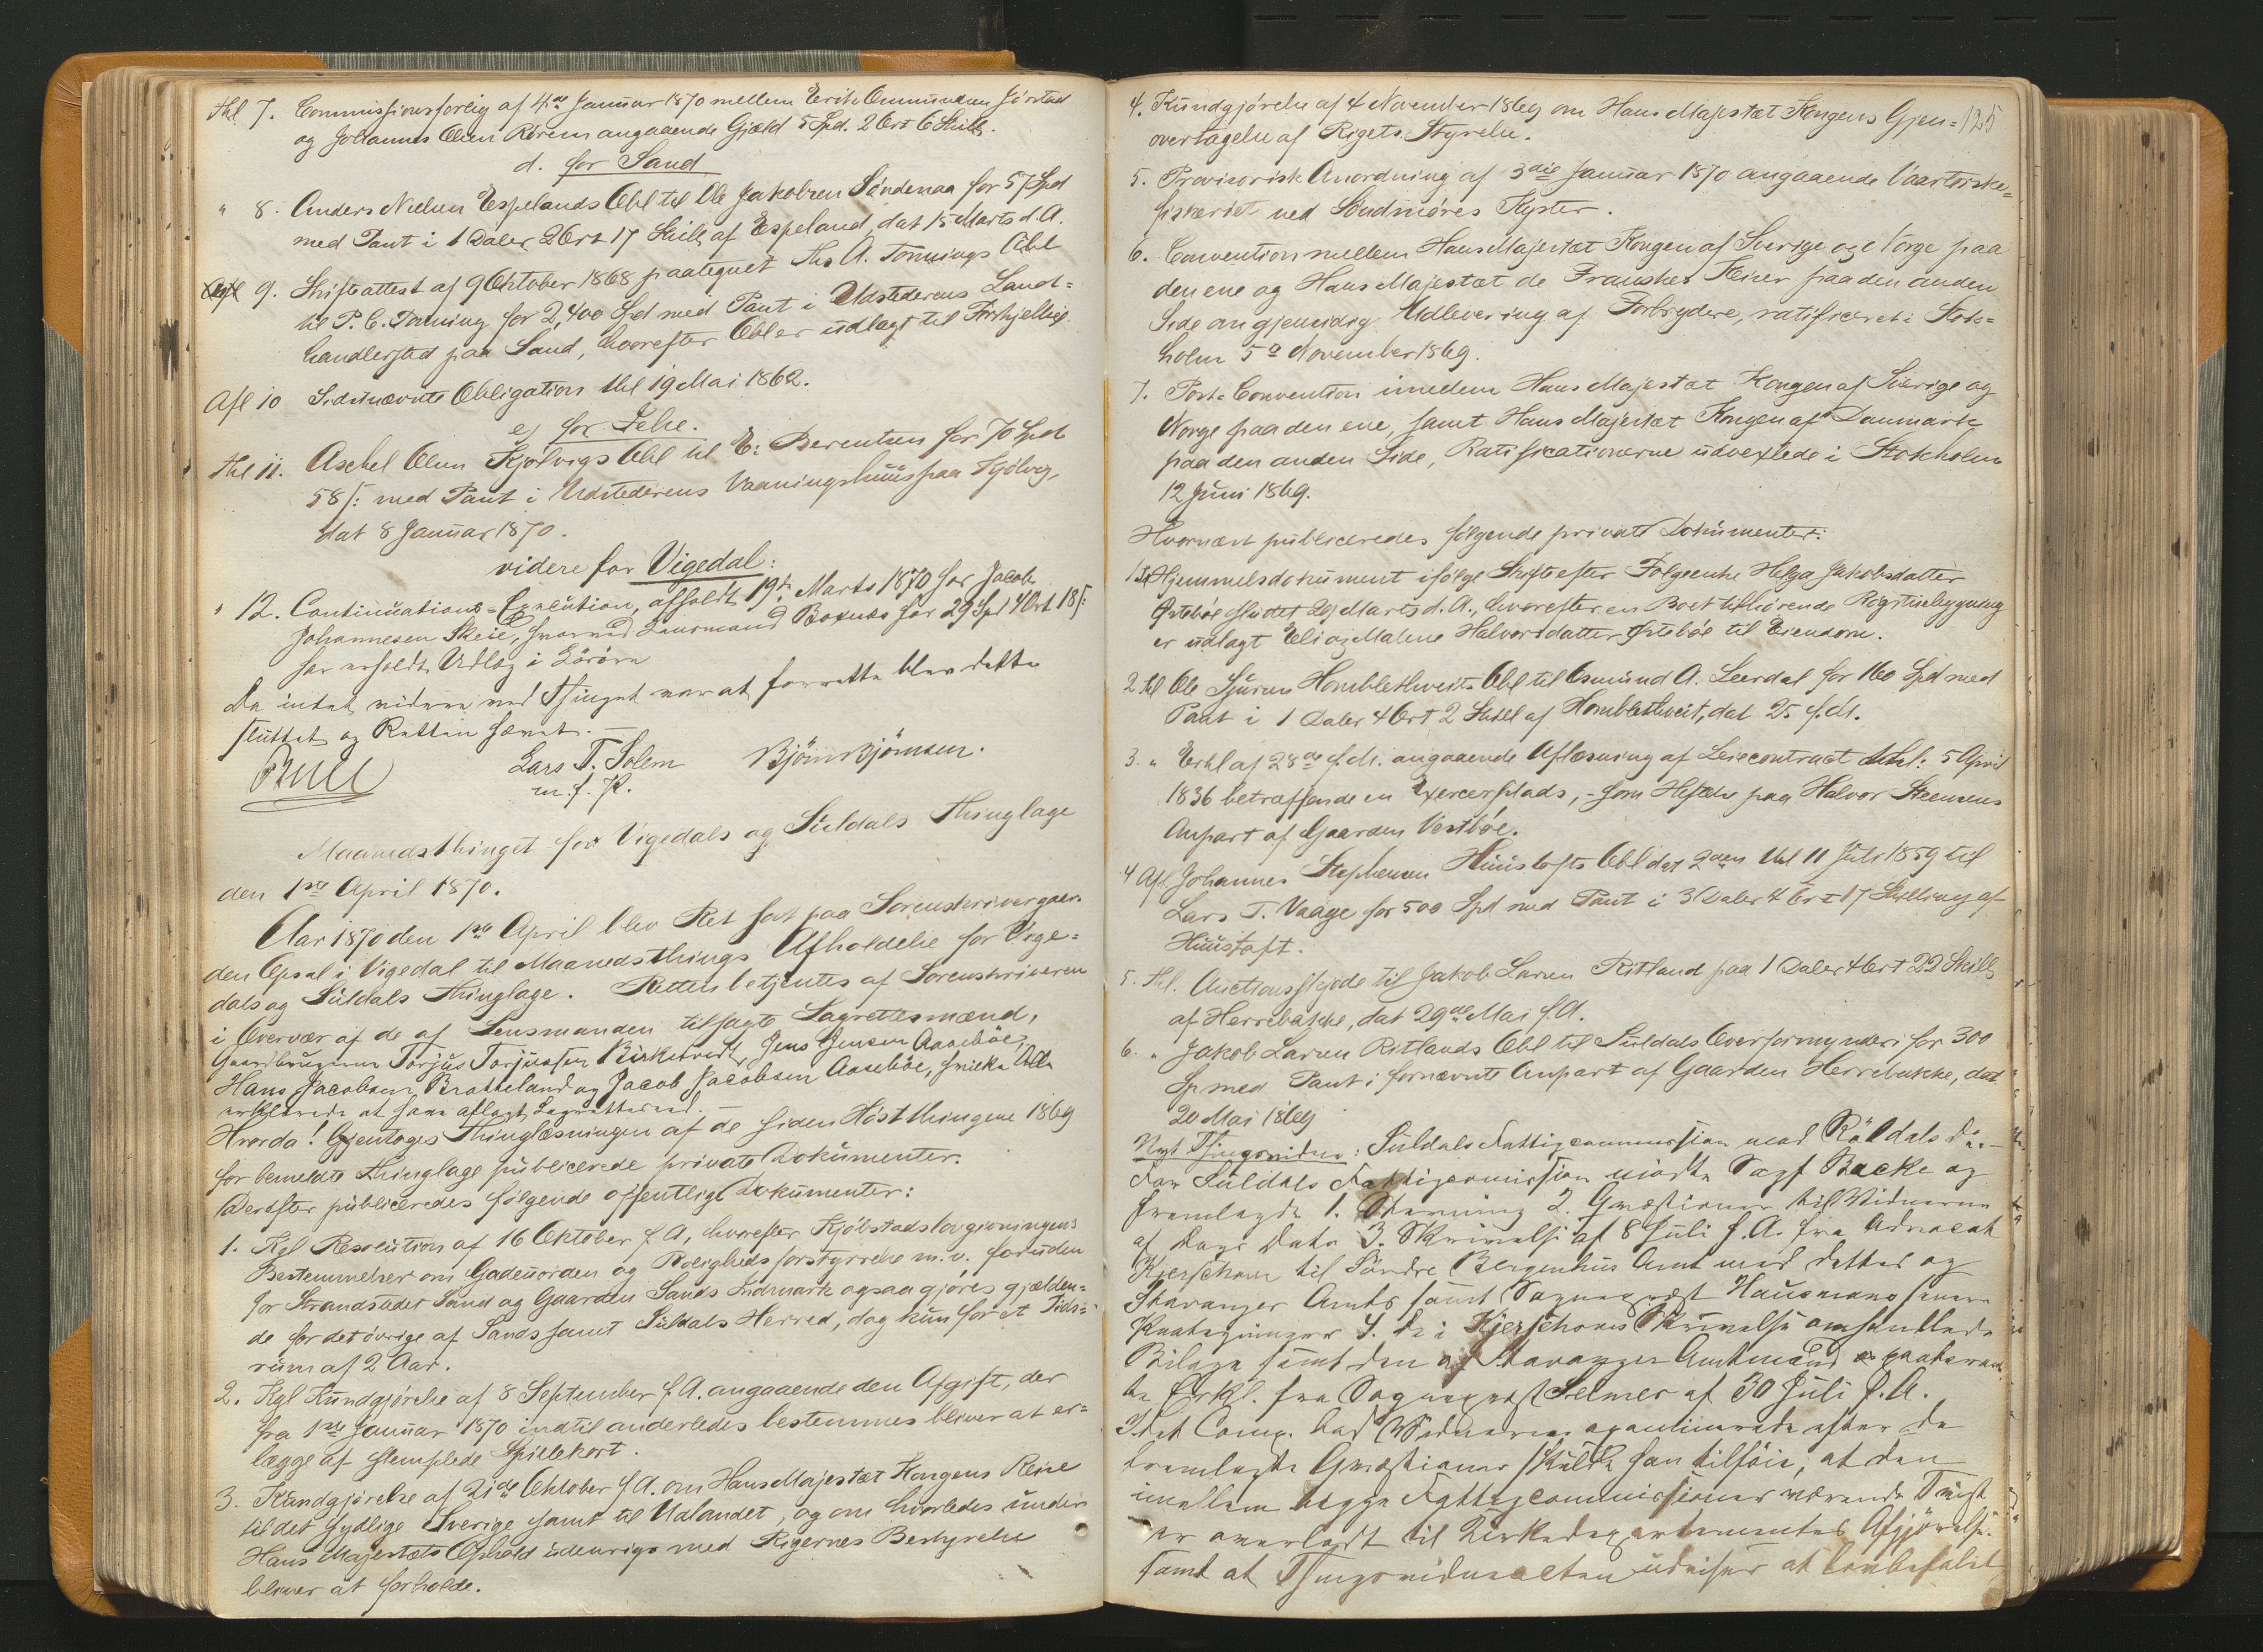 thl 7. Commissionsforlig af 4de Januar 1870 mellem Erik Ommundsen Jörstad
og Johannes Olsen Rörem angaaende Gjæld 5 Spd. 2 Ort 6 Skill.
d. for Sand
" 8. Anders Nielsen Espelands Obl til Ole Jakobsen Söndenaa for 57 Spd
med Pant i 1 Daler 2 Ort 17 Skill af Espeland, dat 15 Marts d. A.
9. Skifteattest af 9 Oktober 1868 paategnet Ths A. Tonnings Obl
til P. C. Tonning for 2,400 Spd med Pant i Udstederens Land=
handlersted paa Sand, hvorefter Obl er udlagt til
Afl 10 Sidstnævnte Obligation thl 19 Mai 1862.
e) for Jelse.
thl 11. Aschel Olsen Kjölvigs Obl til E: Berentsen for 70 Spd
58 s: med Pant i Udstederens Vaaningshuus paa Kjölvig,
dat 8 Januar 1870.
videre for Vigedal:
" 12. Continuations=Execution, afholdt 19de Marts 1870 for Jacob
Johannesen Skeie, hvorved Lensmand Boxnæs for 29 Spd 4 Ort 18 s:
har erholdt Udlæg i Lösöre
Da intet videre ved Thinget var at forrette blev dette
sluttet og Retten hævet. —
Bull
Lars T. Solem Björn Björnsen.
m. f. P.
Maanedsthinget for Vigedals og Suldals Thinglage
den 1ste April 1870.
Aar 1870 den 1ste April blev Ret sat paa Sorenskrivergaar-
den Opsal i Vigedal til Maanedsthings Afholdelse for Vige=
dals og Suldals Thinglage. Retten betjentes af Sorenskriveren
i Overvær af de af Lensmanden tilsagte Lagrettesmænd,
Gaardbrugerne Torjus Torjussen Birketvedt, Jens Jensen Aaseböe,
Hans Jacobsen Bratteland og Jacob Jacobsen Aaseböe, hvilke Alle
erklærede at have aflagt Lagrettesed. —
Hvorda! Gjentoges Thinglæsningen af de siden Höstthingene 1869
for bemeldte thinglage publicerede private Dokumenter.
Derefter publiceredes følgende offentlige Dokumenter:
1. Kgl Resolution af 16 Oktober f. A, hvorefter Kjöbstadslovgivningens
Bestemmelser om Gadeuorden og Roligheds forstyrrelse m. v. foruden
for Strandstedet Sand og Gaarden Sands Indmark ogsaa gjöres gjælden=
de for det övrige af Sands samt Suldals Herred, dog kun for et Tids=
rum af 2 Aar.
2. Kgl Kundgjörelse af 8 September f. A. angaaende den Afgift, der
fra 1ste Januar 1870 indtil anderledes bestemmes bliver at er=
lægge af stemplede Spillekort.
3. Kundgjörelse af 21de Oktober f. A. om Hans Majestæt Kongens Reise
til det sydlige Sverige samt til Udlandet, og om hvorledes under
Hans Majestæts Ophold udenrigs med Rigernes Bestyrelse
bliver at forholde.
125
4. Kundgjörelse af 4 November 1869 om Hans Majestæt Kongens Gjen=
overtagelse af Rigets Styrelse.
5. Provisorisk Anordning af 3die Januar 1870 angaaende Vaartorske=
fiskeriet ved Söndmöres Kyster.
6. Convention mellem Hans Majestæt Kongen af Sverige og Norge paa
den ene og Hans Majestæt de Franskes Keiser paa den anden
Side om gjensidig Udlevering af Forbrydere, ratificeret i Stok=
holm 5te November 1869.
7. Post=Convention imellem Hans Majestæt Kongen af Sverige og
Norge paa den ene, samt Hans Majestæt Kongen af Danmark
paa den anden Side, Ratificationerne udvexlede i Stokholm
12 Juni 1869.
Hvornæst publiceredes følgende private Dokumenter:
1. Hjemmelsdokument ifölge Skifte efter Fölgeenke Helga Jakobsdatter
Östeböe sluttet 29 Marts d. A., hvorefter en Boet tilhörende Rögstuebygning
er udlagt Eli og Malene Halvorsdatter Östeböe til Eiendom.
2 thl Ole Sjursen Hombletveits Obl til Osmund A. Leerdal for 160 Spd med
Pant i 1 Daler 4 Ort 2 Skill af Hombletveit, dat 25 f. M.
3. " Erkl af 28de f. M. angaaende Aflæsning af Leiecontract thl: 5 April
1836 betræffende en Exercerplads, – som Heftelse paa Halvor Steensens
Anpart af Gaarden Vestböe.
4 Afl Johannes Stephensen Huustofts Obl dat 2den thl 11 Juli 1859 til
Lars T. Vaage for 500 Spd med Pant i 3 Daler 4 Ort 17 Skilling af
Huustoft.
5. thl. Auctionsskjöde til Jakob Larsen Ritland paa 1 Daler 4 Ort 22 Skill
af Herrebakke, dat 29de Mai f. A.
6. " Jakob Larsen Ritlands Obl til Suldals Overformynderi for 300
Sp med Pant i fornævnte Anpart af Gaarden Herrebakke, dat
20 Mai 1869
Nyt Thingsvidne: Suldals Fattigcommission mod Röldals do.—
For Suldals Fattigcommission mödte Sagf Backe og
fremlagde 1. Stevning 2. Qvæstioner til Vidnerne
af Dags Dato 3. Skrivelse af 8 Juli f. A. fra Advocat
Kjerschow til Söndre Bergenhus Amt med dettes og
Stavanger Amts samt Sogneprest Hausmans
Paategninger 4. de i Kjerschows Skrivelse omhandlede
Bilage samt den af Stavanger Amtmand
Erkl. fra Sogneprest Selmer af 30 Juli f. A.
Idet Comp. bad Vidnerne examinerede efter de
fremlagte Qvæstioner skulde han tilföie, at den
imellem begge Fattigcommissioner værende Tvist
er overladt til Kirkedepartementets Afgjörelse.
samt at Thingsvidneakten udviser at